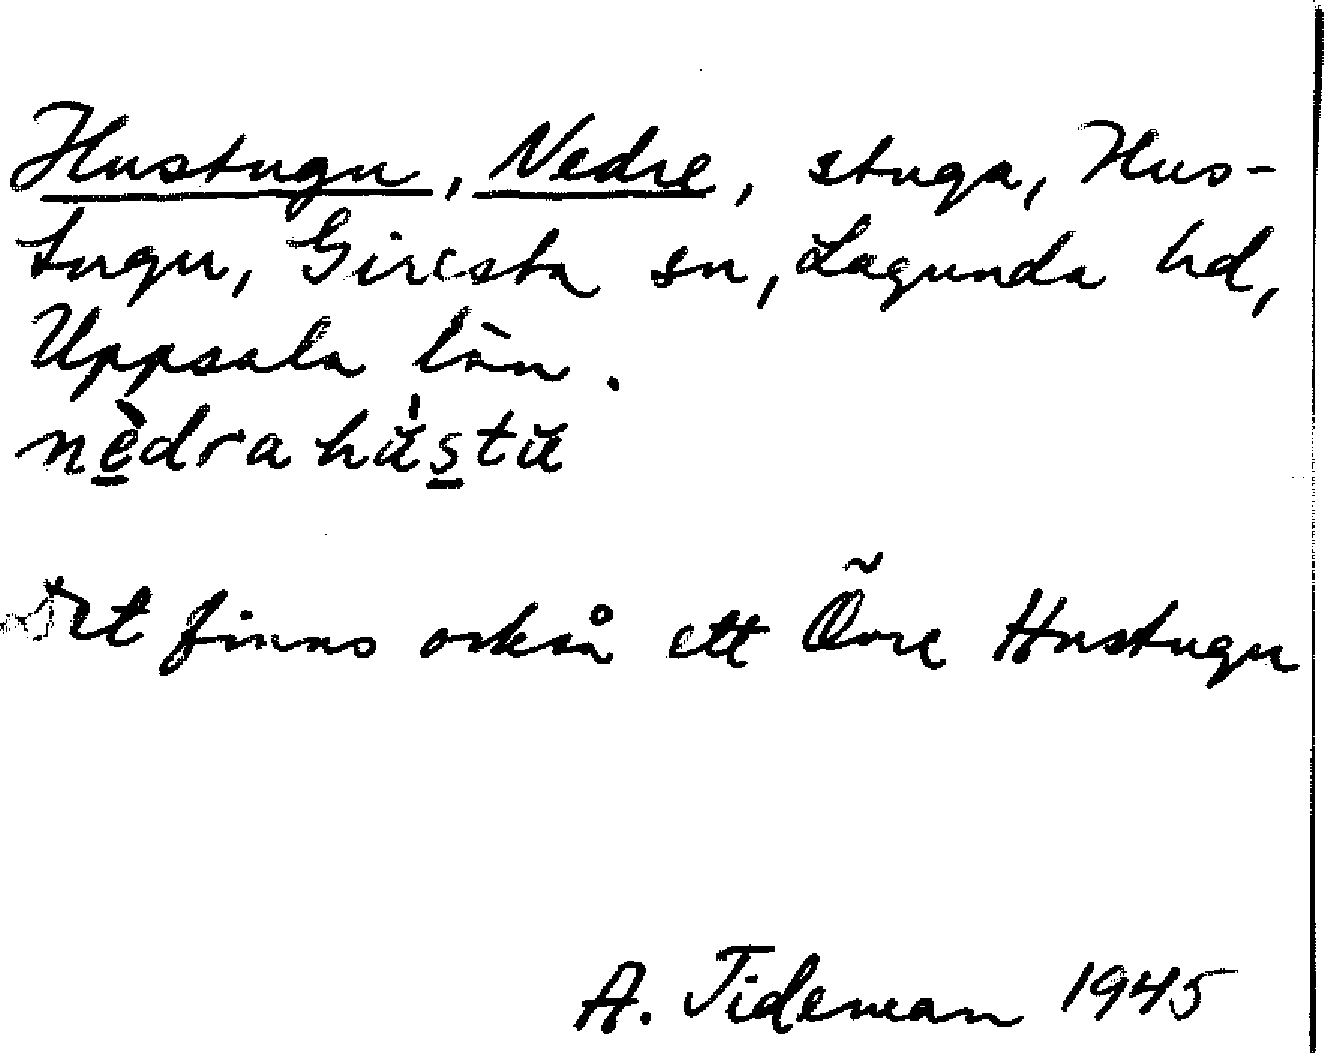 Hustugu, Nedre, stuga, Hus-
tugu, Giresta sn, Lagunda hd,
Uppsala län.
nèdra hústu
Det finns också ett Övre Hustugu
A. Tideman 1945